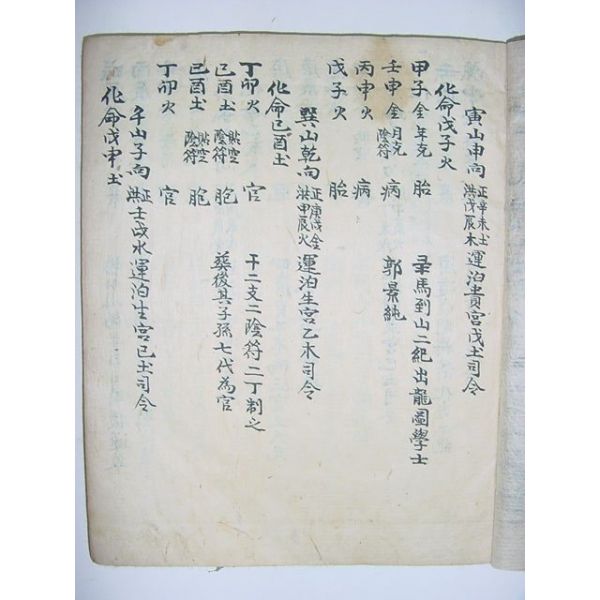 寅山申向 正辛未土 洪戊辰木 運泊貴宮戊土司令
化命戊子火
甲子金 年克 胎 馬到山二紀出龍圖學士
壬申金 月克 陰符 病 郭景純
丙申火 病
戊子火 胎
巽山乾向 正庚戌金 洪甲辰火 運泊生宮乙木司令
化命己酉土
丁卯火 官 干二支二陰符二丁制之
己酉土 貼空 陰符 胞 葬後其子孫七代為官
己酉土 貼空 陰符 胞
丁卯火 官
壬山子向 正 洪 壬戌水 運泊生宮己土司令
化命戊申土